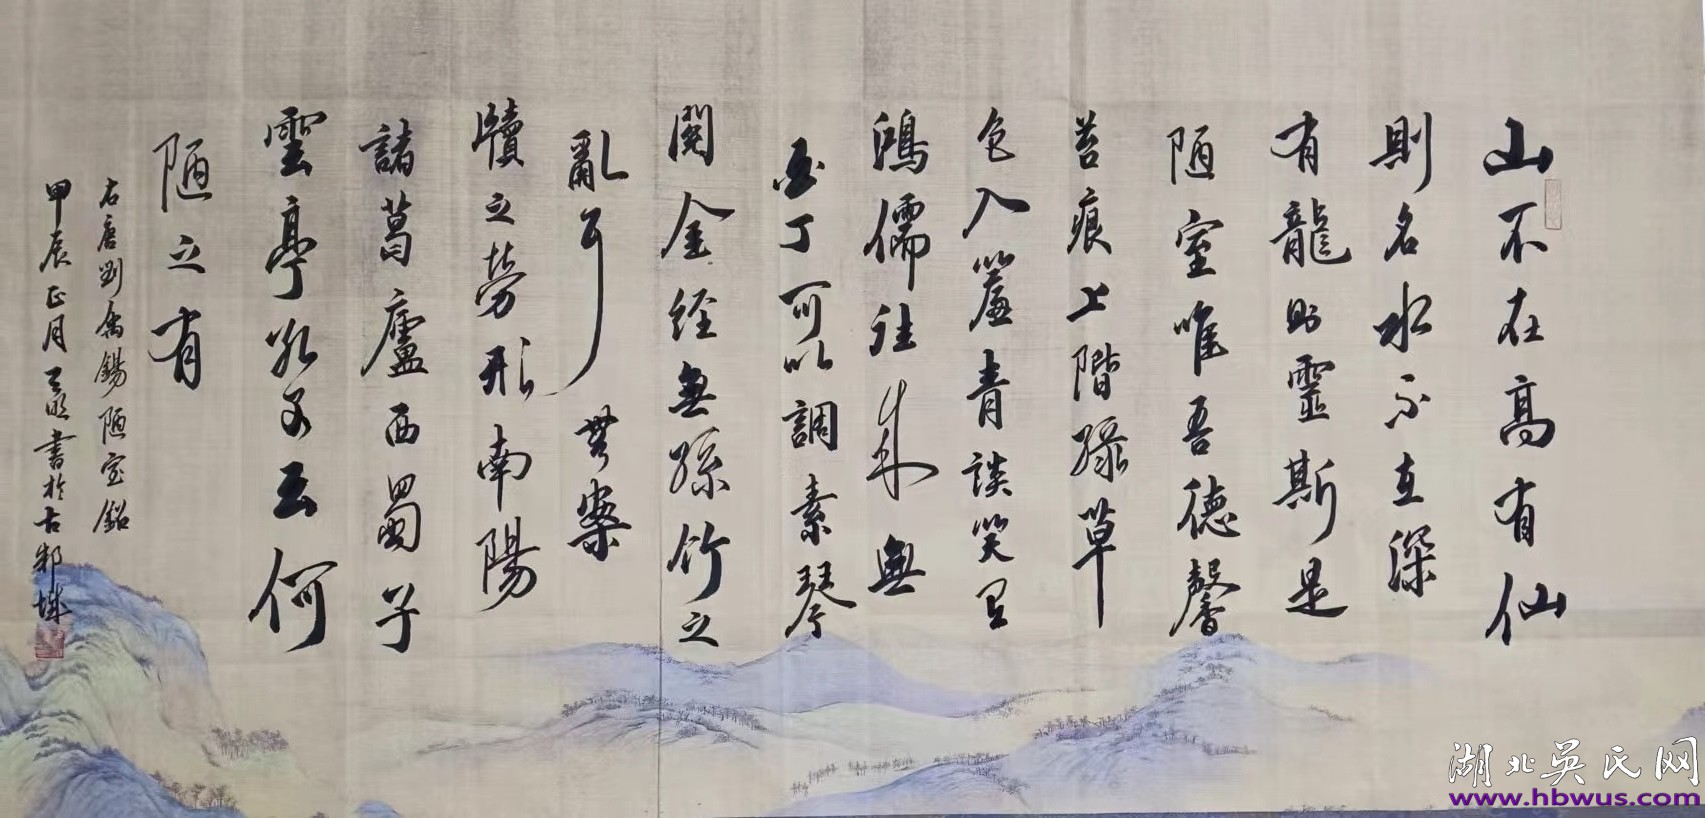 山不在高有仙
則名水不在深
有龍則靈斯是
陋室唯吾德馨
苔痕上階緑草
色入簾青談笑有
鴻儒往来無
白丁可以調素琴
閲金經無絲竹之
亂耳無案
牘之勞形南陽
諸葛廬西蜀子
雲亭孔子云何
陋之有
右唐劉禹錫陋室銘
甲辰正月書於古邾城
湖北吴氏网
www.hbwus.com